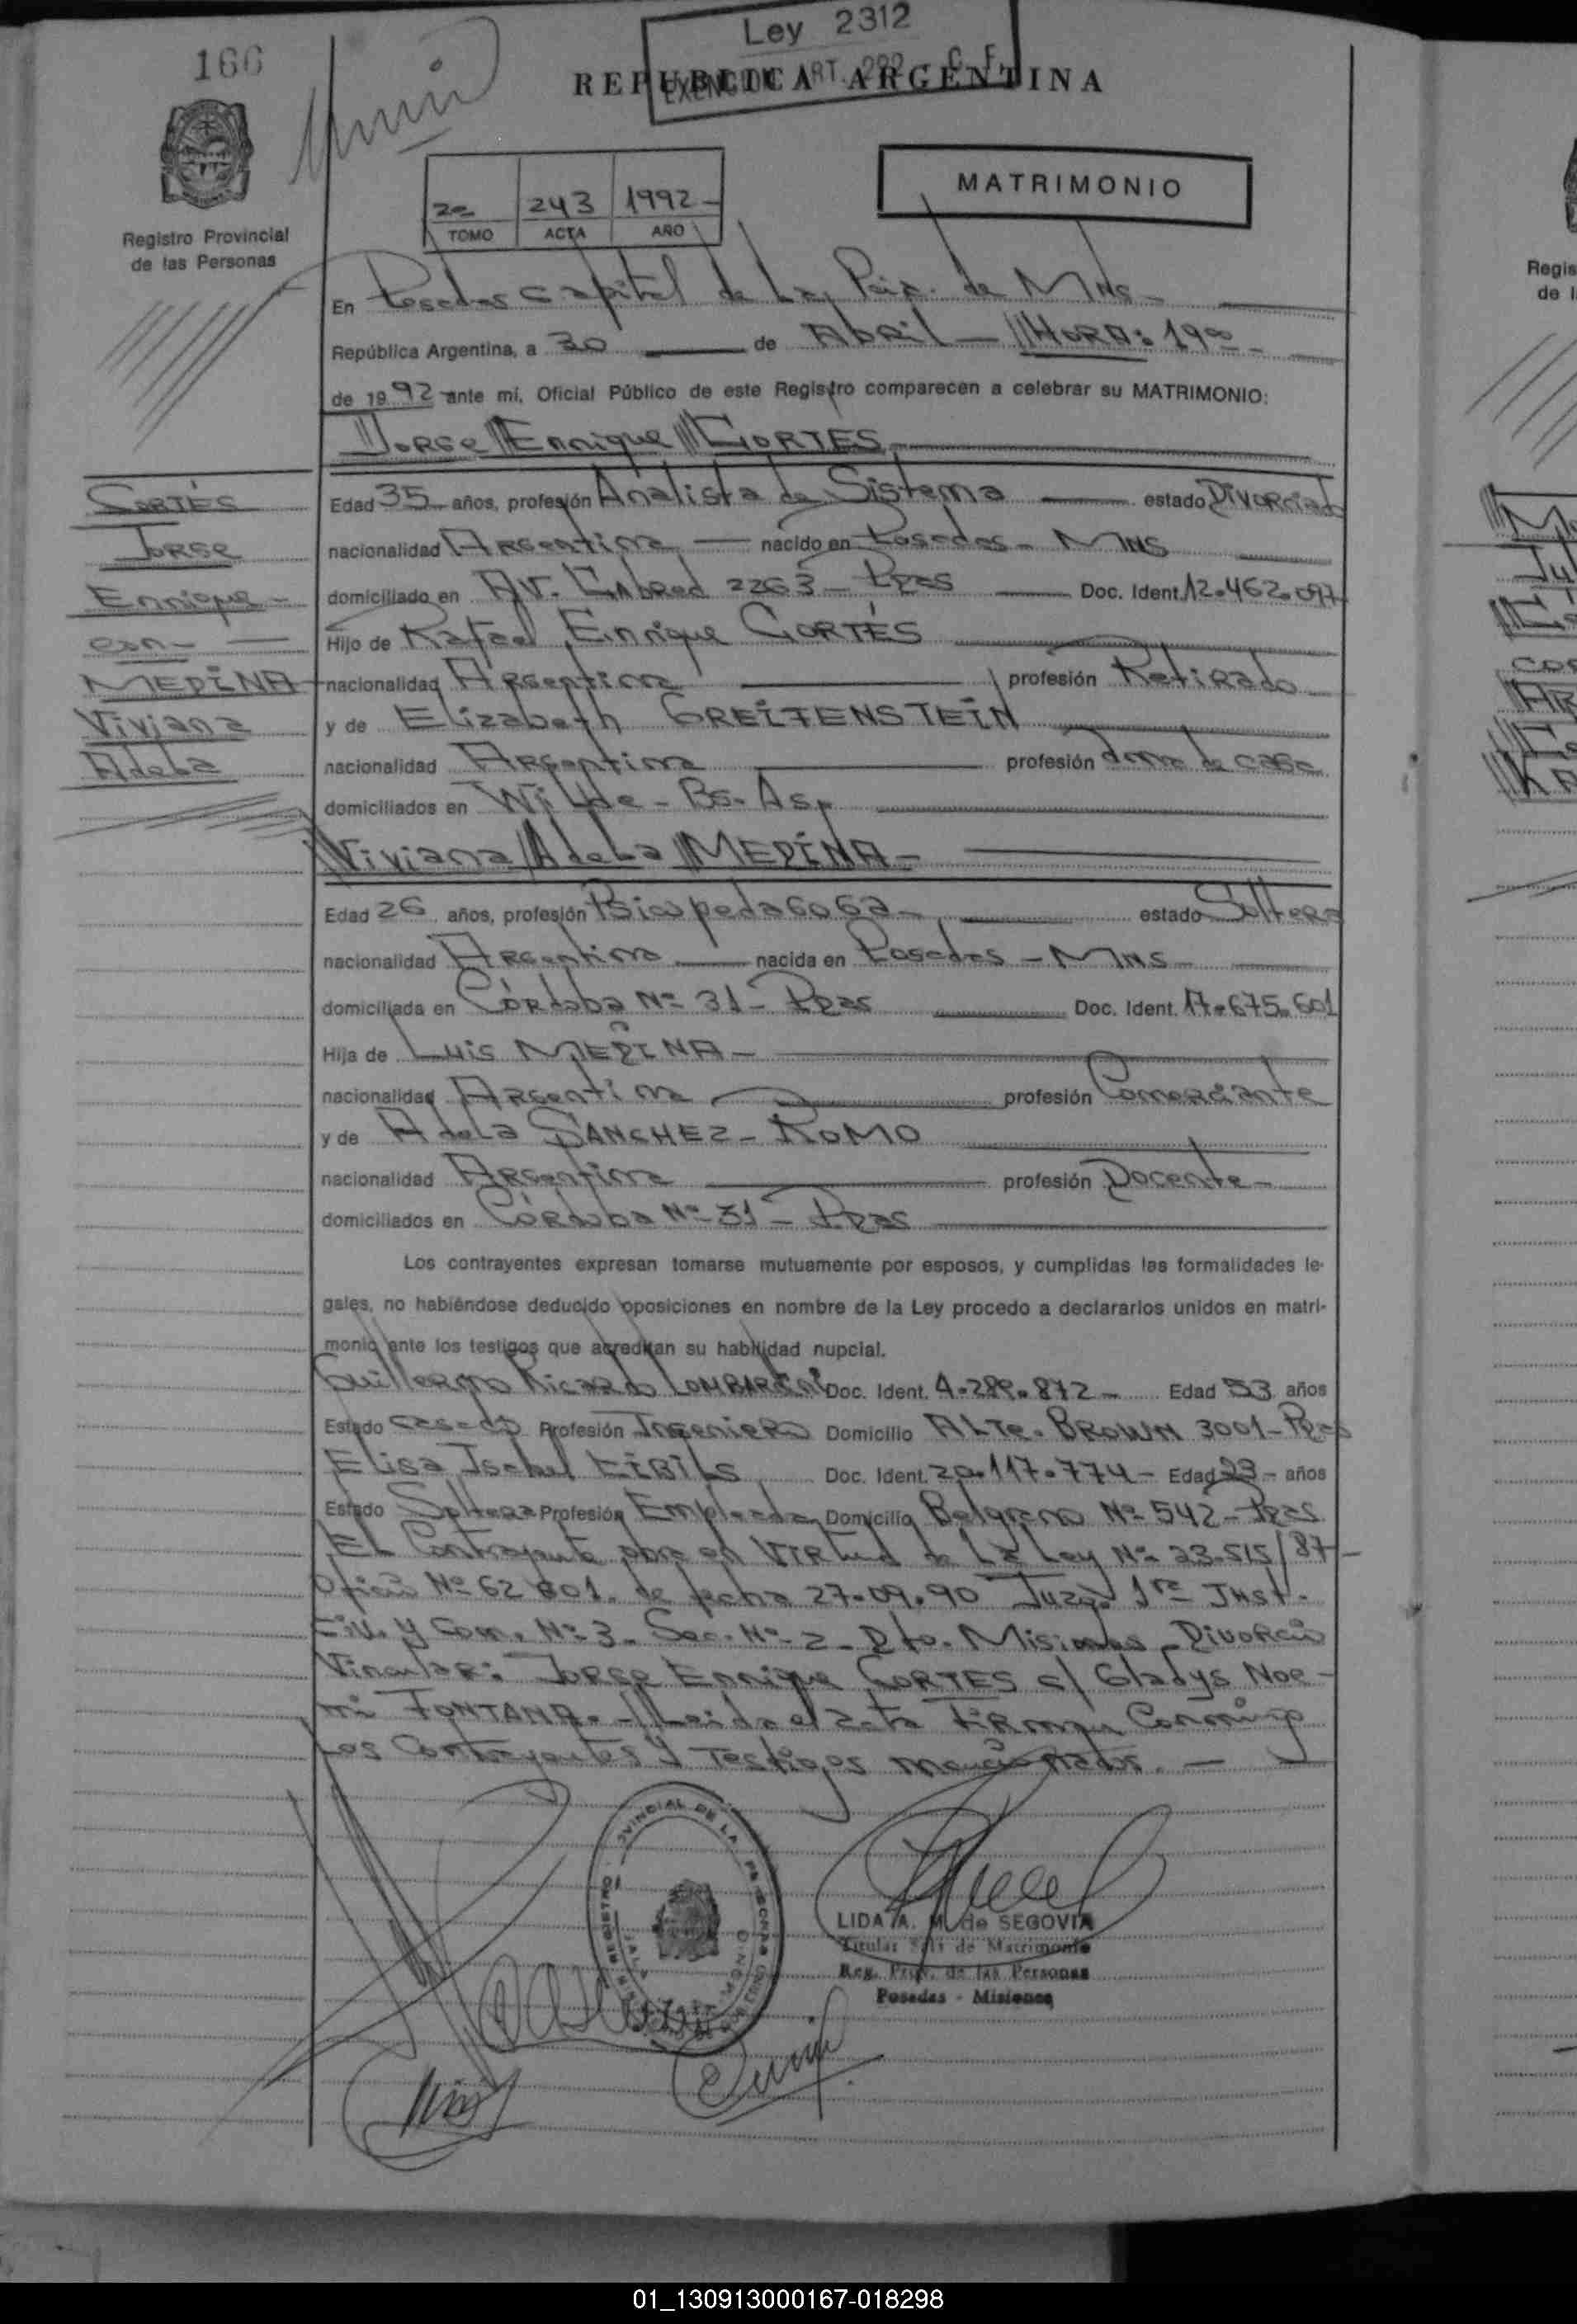 166
Ley 2312
EXENCION ART. 292 - C. F.
REPUBLICA ARGENTINA
Registro Provincial
de las Personas
2º 243 1992-
TOMO ACTA AÑO
MATRIMONIO
En Posadas Capital de La Pcia. de Mns-
República Argentina, a 30 de Abril - HORA: 19⁰⁰-
de 1992 ante mí, Oficial Público de este Registro comparecen a celebrar su MATRIMONIO:
Jorge Enrique CORTES
CORTÉS
Jorge
Enrique-
con-
MEDINA
Viviana
Adela
Edad 35 años, profesión Analista de Sistema estado Divorciado
nacionalidad Argentina nacido en Posadas - MNS
domiciliado en AV. Cabred 2263 - Pdas Doc. Ident. 12.462.097
Hijo de Rafael Enrique CORTÉS
nacionalidad Argentina profesión Retirado
y de Elizabeth GREIFENSTEIN
nacionalidad Argentina profesión ama de casa
domiciliados en Wilde - Bs. As.
Viviana Adela MEDINA-
Edad 26 años, profesión Psicopedagoga- estado Soltera
nacionalidad Argentina nacida en Posadas - MNS
domiciliada en Córdoba Nº 31 - Pdas Doc. Ident. 17.675.601
Hija de Luis MEDINA-
nacionalidad Argentina profesión Comerciante
y de Adela SANCHEZ-ROMO
nacionalidad Argentina profesión Docente-
domiciliados en Córdoba Nº 31 - Pdas
Los contrayentes expresan tomarse mutuamente por esposos, y cumplidas las formalidades le-
gales, no habiéndose deducido oposiciones en nombre de la Ley procedo a declararlos unidos en matri-
monio ante los testigos que acreditan su habilidad nupcial.
Guillermo Ricardo LOMBARDINI Doc. Ident. 4.289.872- Edad 53 años
Estado casado Profesión Ingeniero Domicilio ALTe. BROWN 3001-Pdas
Elisa Isabel Doc. Ident. 20.117.774- Edad 23- años
Estado Soltera Profesión Empleada Domicilio Belgrano Nº 542-Pdas
El Contrayente obra en Virtud de La Ley Nº 23.515/87-
Oficio Nº 62 de fecha 27.09.90 Juzg. 1ra Inst.
Civ. y Com. Nº 3- Sec. Nº 2- Misiones - Divorcio
Vincular: Jorge Enrique CORTES c/ Gladys Noe-
mi FONTANA.- Leída el acta firman Conmigo
Los Contrayentes y Testigos mencionados.-
LIDA A. M. de SEGOVIA
Titular de Matrimonio
Reg. Prov. de las Personas
Posadas - Misiones
Regis
de l
01_130913000167-018298